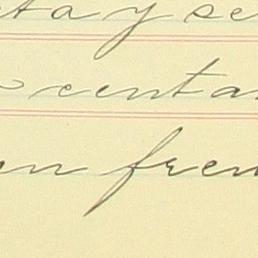 ta y se
centa
en fren